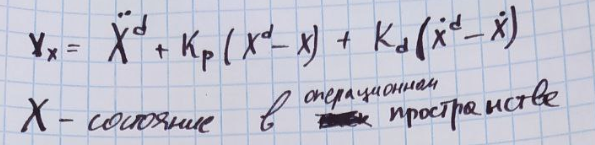 γₓ = Ẍᵈ + Kₚ (Xᵈ - X) + K_d (Ẋᵈ - Ẋ)
X - состояние в операционном пространстве